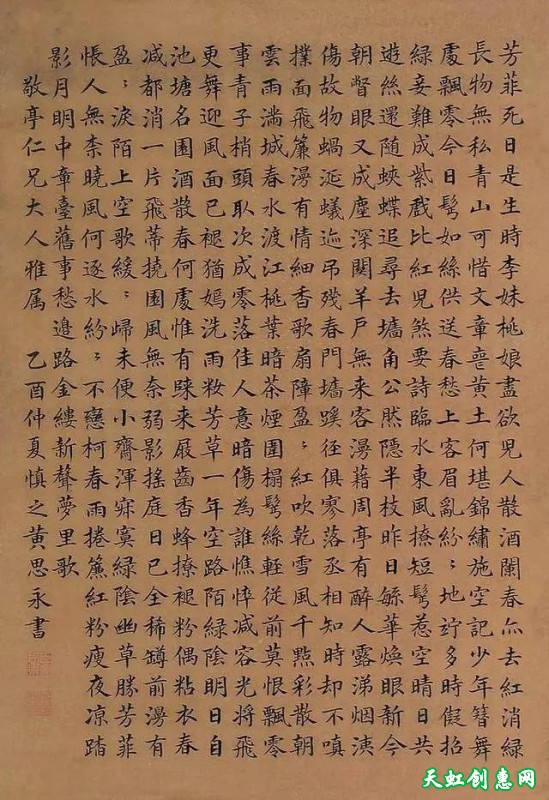 芳菲死日是生時李妹桃娘盡欲兒人散酒闌春亦去紅消綠
長物無私青山可惜文章喪黃土何堪錦繡施空記少年簪舞
處飄零今日鬢如絲供送春愁上客眉亂紛〻地竚多時儗招
綠妾難成紫戲比紅兒煞要詩臨水東風撩短鬢惹空晴日共
遊絲還隨蛺蝶追尋去墻角公然隱半枝昨日緐華煥眼新今
朝瞥眼又成塵深關羊戶無來客漫藉周亭有醉人露涕烟洟
傷故物蝸涎蟻迹弔殘春門墻蹊徑俱寥落丞相知時却不嗔
撲面飛簾漫有情細香歌扇障盈〻紅吹乾雪風千點彩散朝
雲雨滿城春水渡江桃葉暗茶煙圍榻鬢絲輕從前莫恨飄零
事青子梢頭取次成零落佳人意暗傷為誰憔悴減容光將飛
更舞迎風面已褪猶嫣洗雨妝芳草一年空路陌綠陰明日自
池塘名園酒散春何處惟有踩来屐齒香蜂撩褪粉偶粘衣春
减都消一片飛蒂撓園風無奈弱影搖庭日已全稀罇前漫有
盈〻淚陌上空歌緩〻歸未便小齋渾寂寞綠陰幽草勝芳菲
悵人無柰曉風何逐水紛〻不戀柯春雨捲簾紅粉瘦夜凉踏
影月明中章臺舊事愁邉路金縷新聲夢里歌
敬亭仁兄大人雅属 乙酉仲夏慎之黃思永書
天虹创惠网